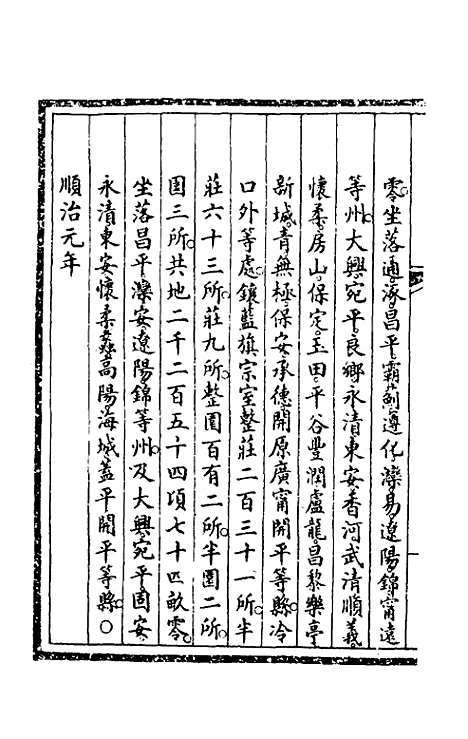 零坐落通涿昌平霸薊遵化灤易遼陽錦甯遠
等州大興宛平良鄉永清東安香河武清順義
懷柔房山保定玉田平谷豐潤盧龍昌黎樂亭
新城青無極保安承德開原廣甯開平等縣冷
口外等處鑲藍旗宗室整莊二百三十一所半
莊六十三所莊九所整園百有二所半園二所
園三所共地二千二百五十四頃七十四畝零
坐落昌平灤安遼陽錦等州及大興宛平固安
永清東安懷柔蠡高陽海城蓋平開平等縣○
順治元年